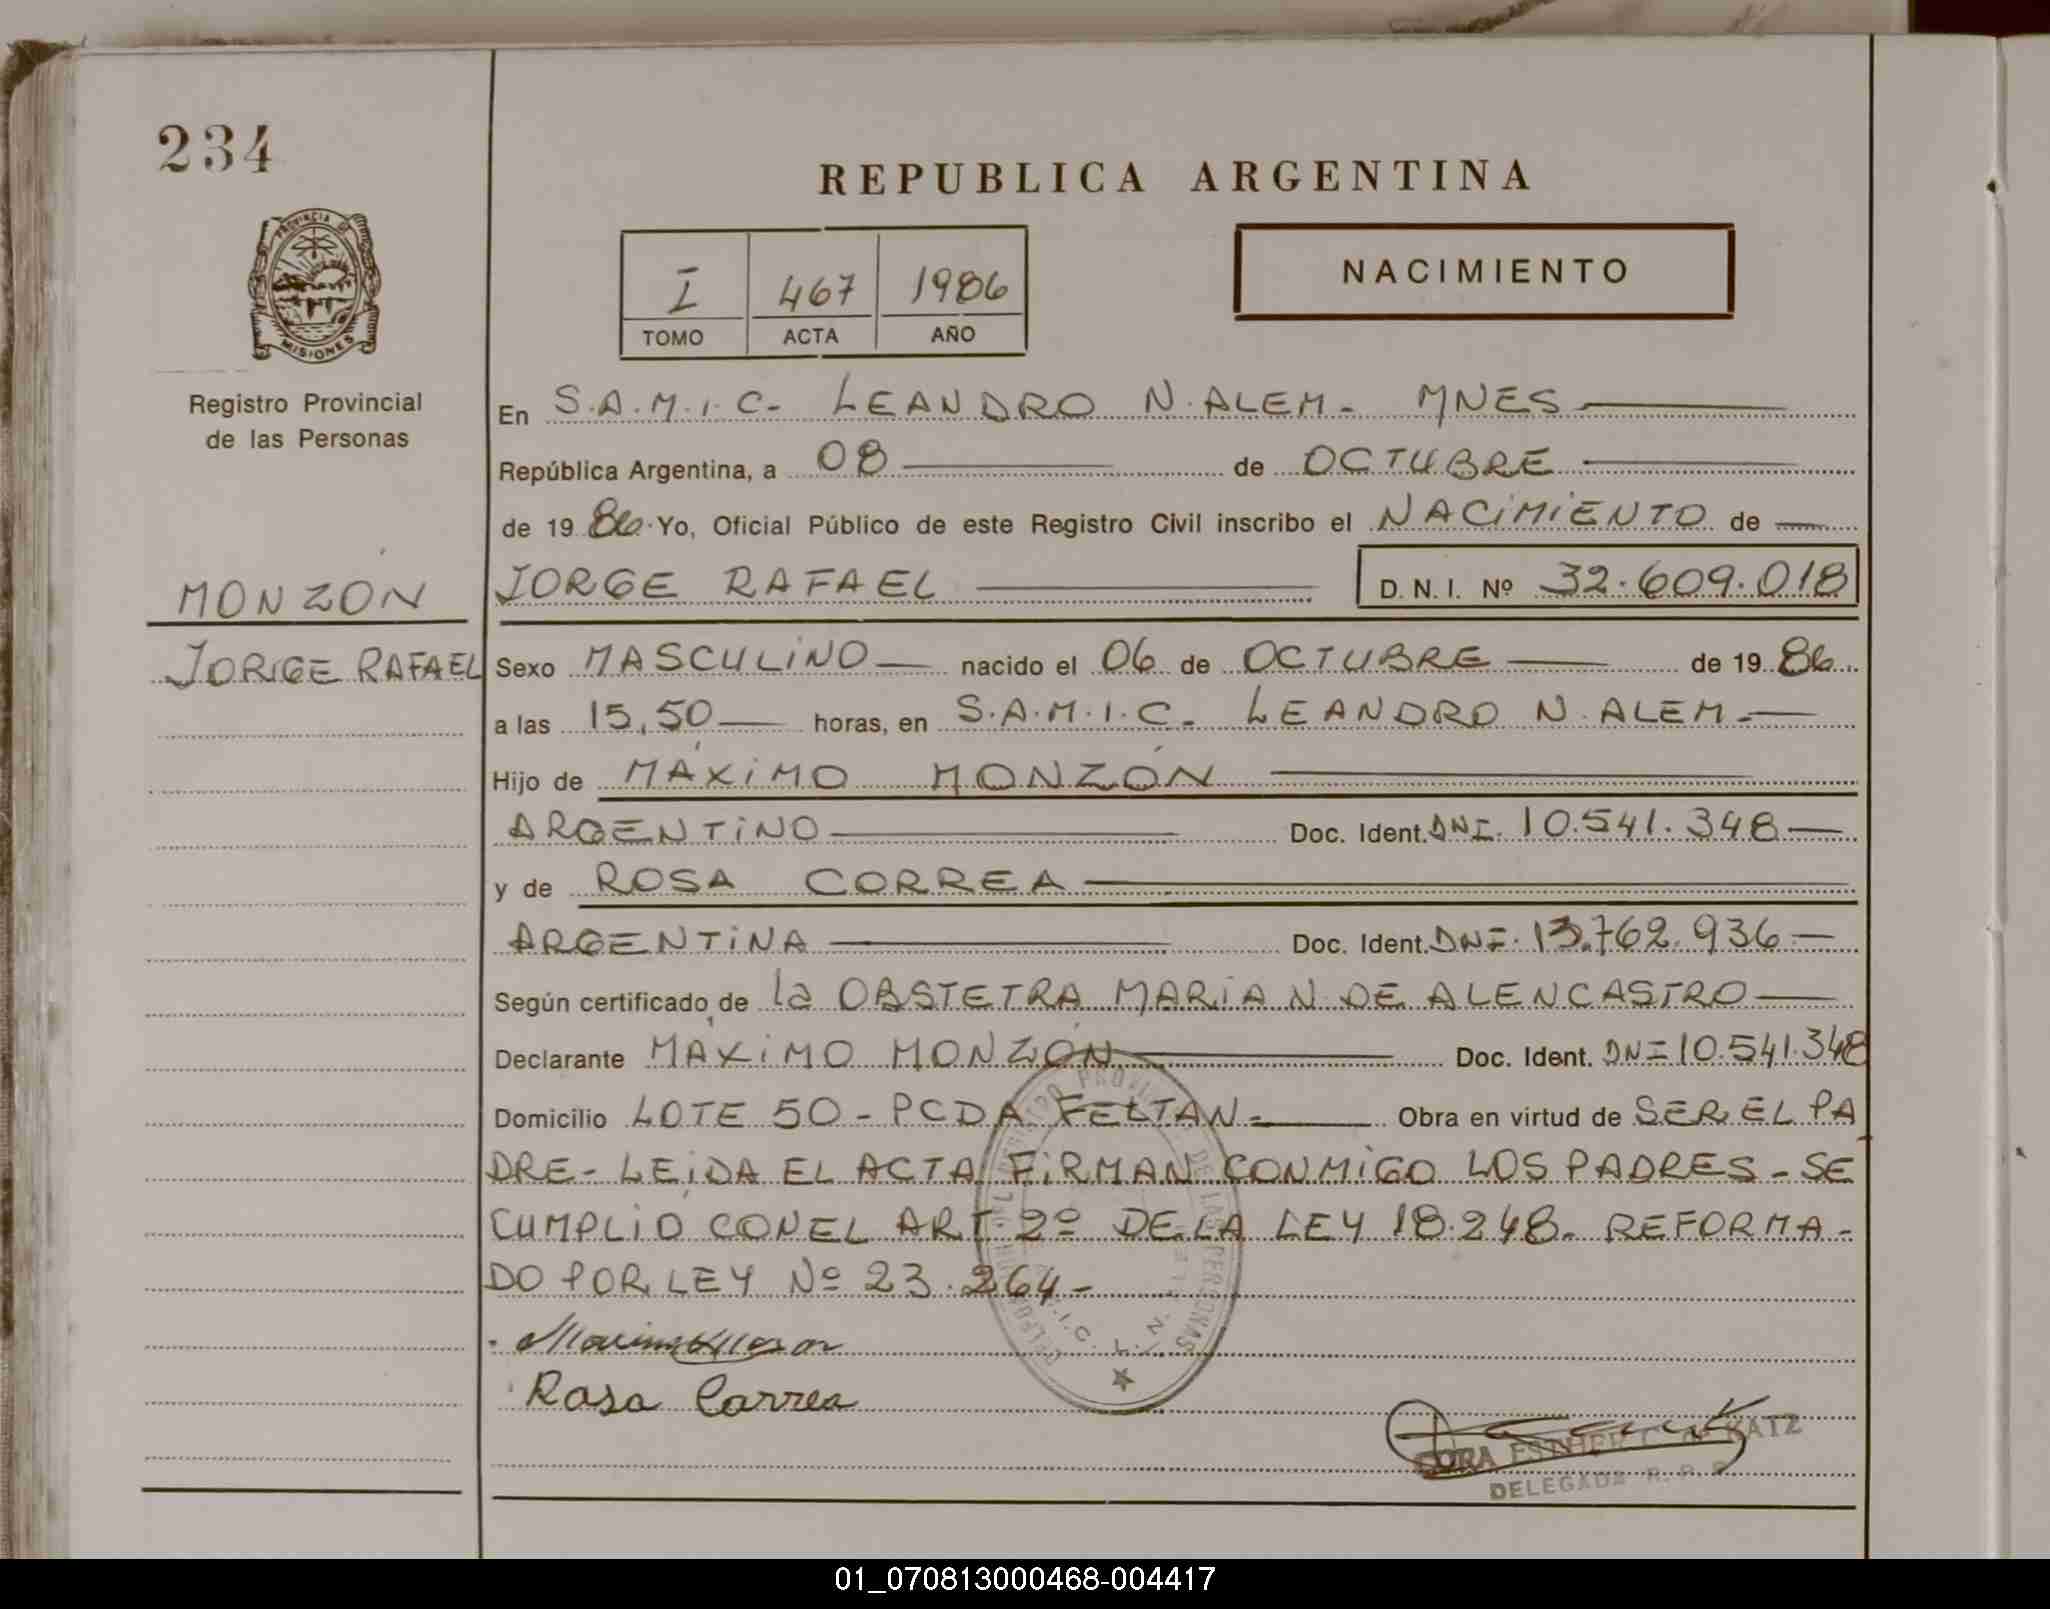 234
REPUBLICA ARGENTINA
PROVINCIA DE
MISIONES
Registro Provincial
de las Personas
I 467 1986
TOMO ACTA AÑO
NACIMIENTO
En S.A.M.I.C- LEANDRO N. ALEM- MNES
República Argentina, a 08 de OCTUBRE
de 19 86 Yo, Oficial Público de este Registro Civil inscribo el NACIMIENTO de
MONZÓN
JORGE RAFAEL
JORGE RAFAEL D.N.I. Nº 32.609.018
Sexo MASCULINO nacido el 06 de OCTUBRE de 19 86
a las 15,50 horas, en S.A.M.I.C- LEANDRO N. ALEM-
Hijo de MÁXIMO MONZÓN
ARGENTINO Doc. Ident. DNI. 10.541.348
y de ROSA CORREA
ARGENTINA Doc. Ident. DNI. 13.762.936
Según certificado de la OBSTETRA MARIA N. DE ALENCASTRO
Declarante MÁXIMO MONZÓN Doc. Ident. DNI 10.541.348
Domicilio LOTE 50 - PCDA FELTAN- Obra en virtud de SER EL PA
DRE- LEÍDA EL ACTA FIRMAN CONMIGO LOS PADRES - SE
CUMPLIO CON EL ART 2º DE LA LEY 18.248- REFORMA-
DO POR LEY Nº 23.264-
Rosa Correa
DORA ESTHER C. de KATZ
DELEGADA R. P. P.
01_070813000468-004417